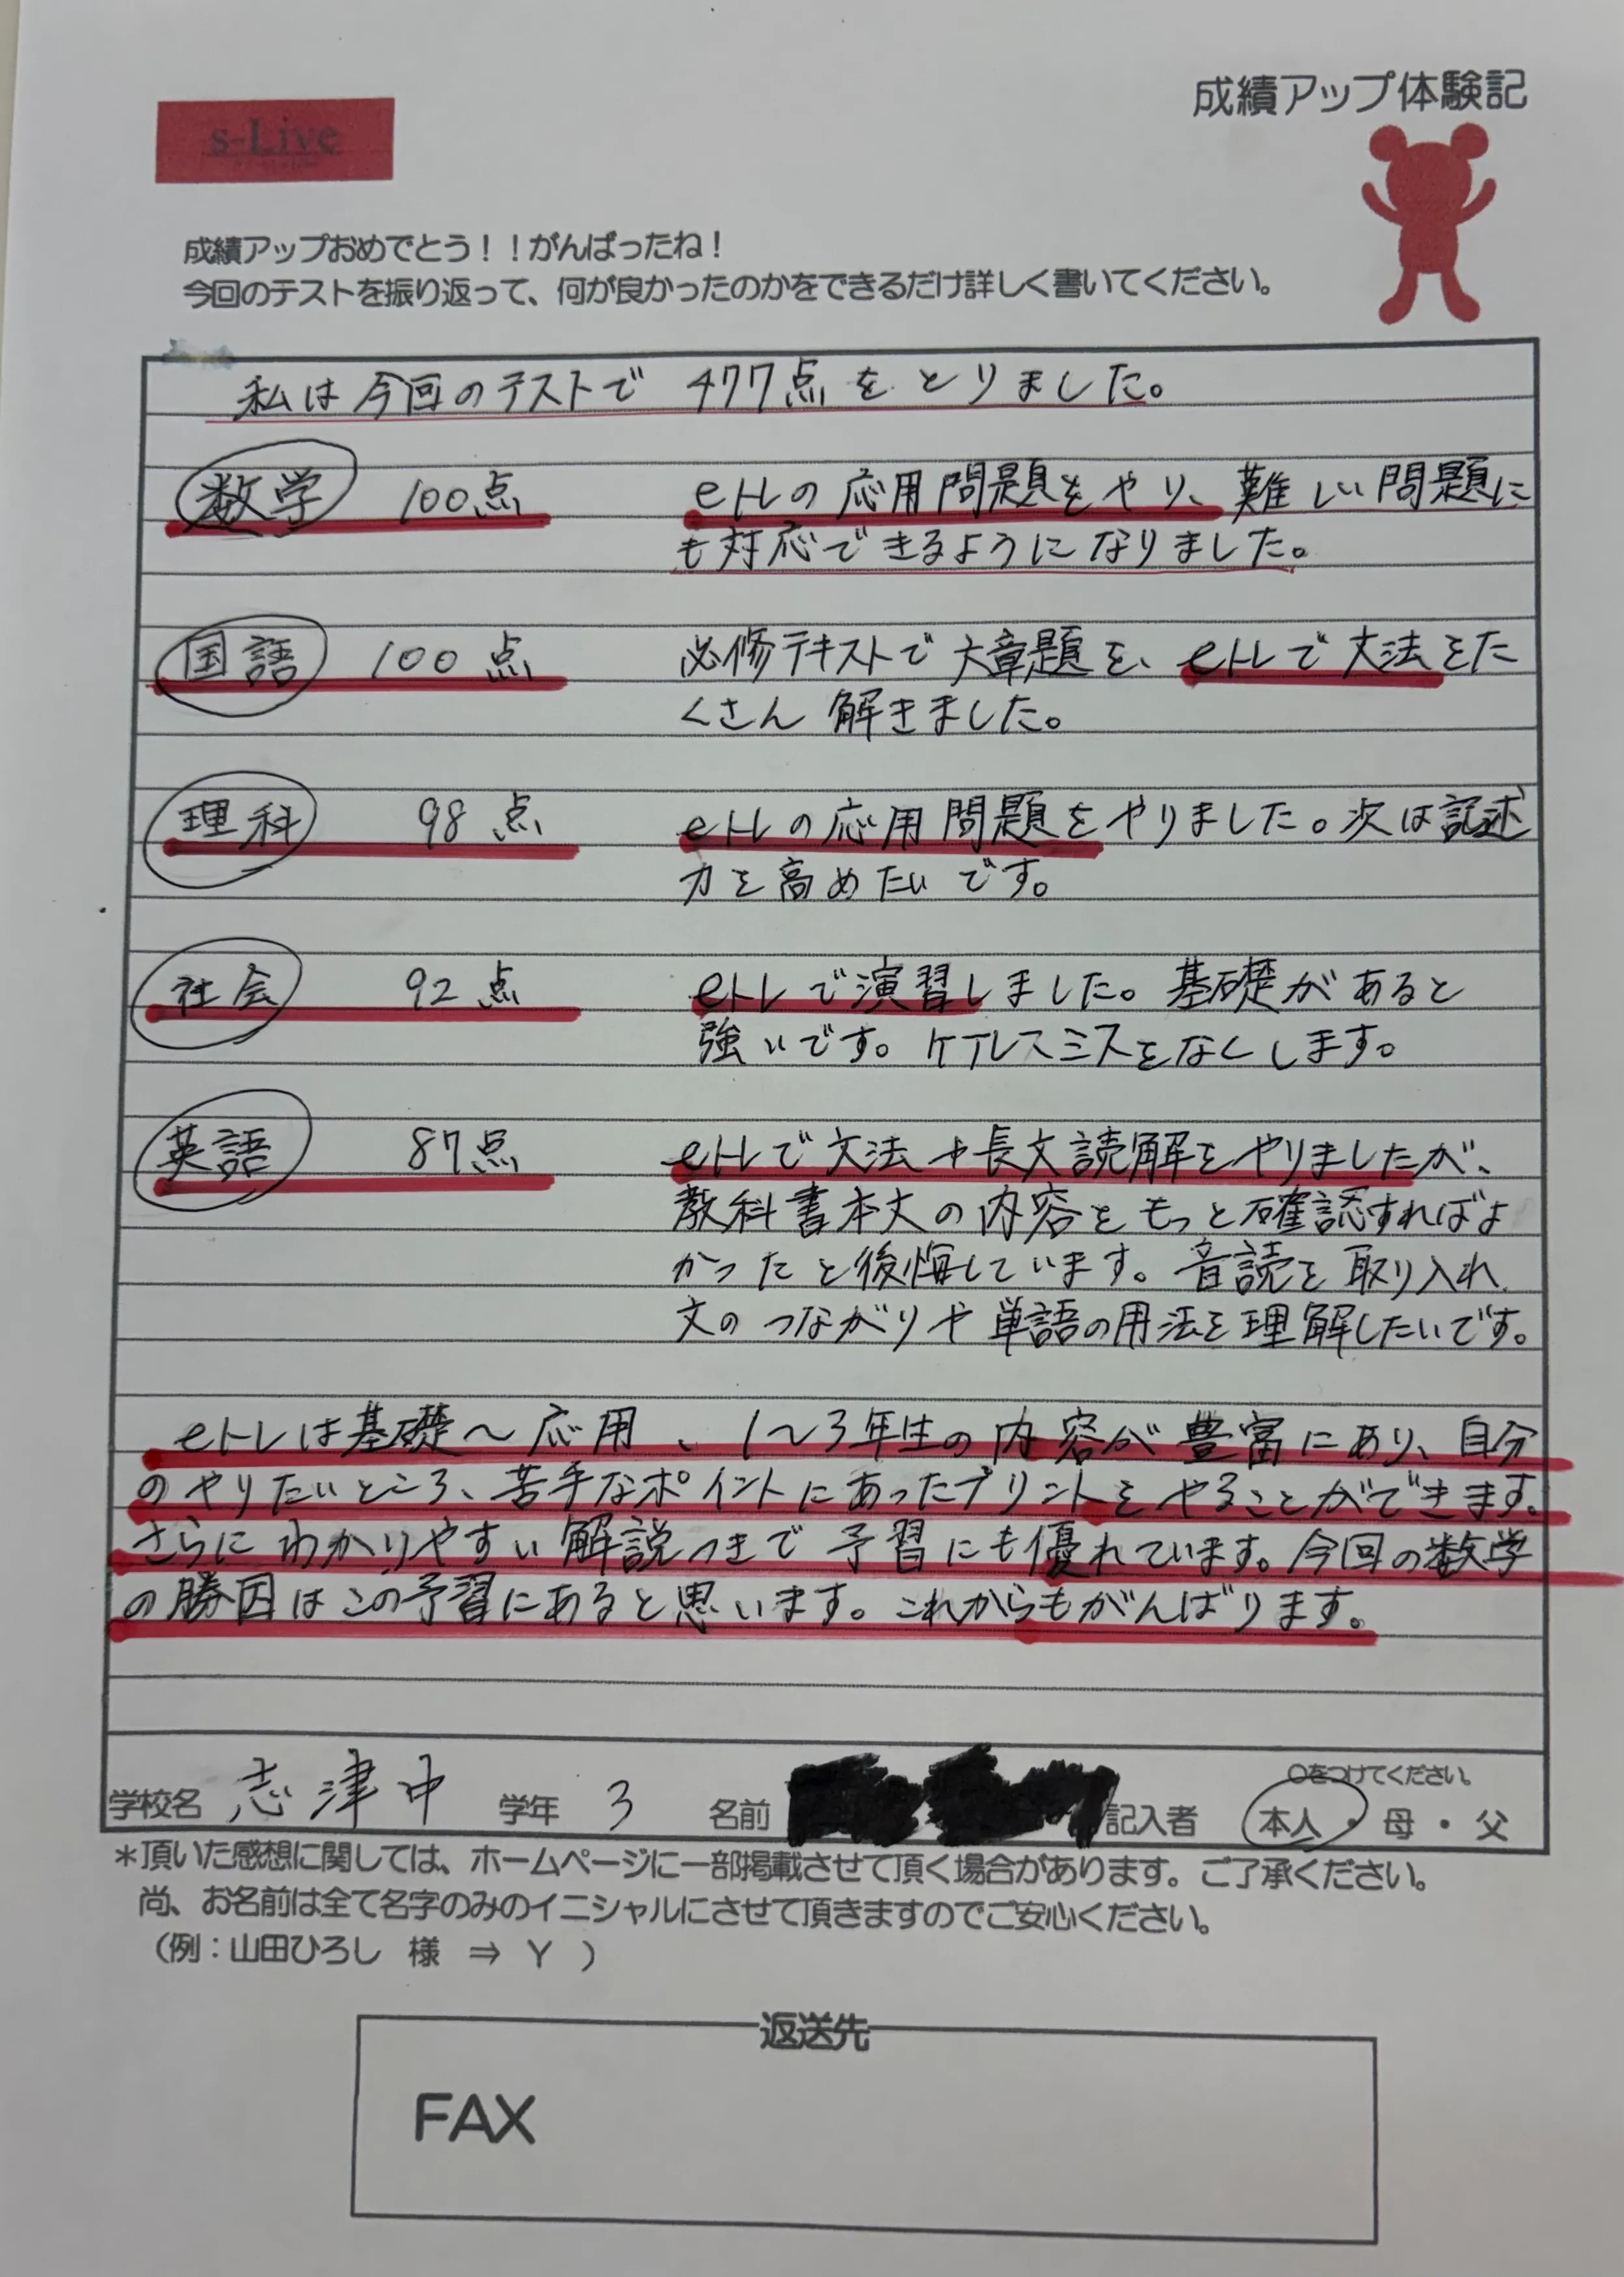 成績アップ体験記
s-Live
成績アップおめでとう！！がんばったね！
今回のテストを振り返って、何が良かったのかをできるだけ詳しく書いてください。
私は今回のテストで 477点をとりました。
数学 100点 eトレの応用問題をやり、難しい問題に
も対応できるようになりました。
国語 100点 必修テキストで大章題を、eトレで文法をた
くさん解きました。
理科 98点 eトレの応用問題をやりました。次は記述
力を高めたいです。
社会 92点 eトレで演習しました。基礎があると
強いです。ケアレスミスをなくします。
英語 87点 eトレで文法+長文読解をやりましたが、
教科書本文の内容をもっと確認すればよ
かったと後悔しています。音読を取り入れ
文のつながりや単語の用法を理解したいです。
eトレは基礎〜応用、1〜3年生の内容が豊富にあり、自分
のやりたいところ、苦手なポイントにあったプリントをやることができます。
さらにわかりやすい解説つきで予習にも優れています。今回の数学
の勝因はこの予習にあると思います。これからもがんばります。
〇をつけてください。
学校名 志津中 学年 3 名前 記入者 本人・母・父
＊頂いた感想に関しては、ホームページに一部掲載させて頂く場合があります。ご了承ください。
尚、お名前は全て名字のみのイニシャルにさせて頂きますのでご安心ください。
（例：山田ひろし 様 ⇒ Y ）
返送先
FAX